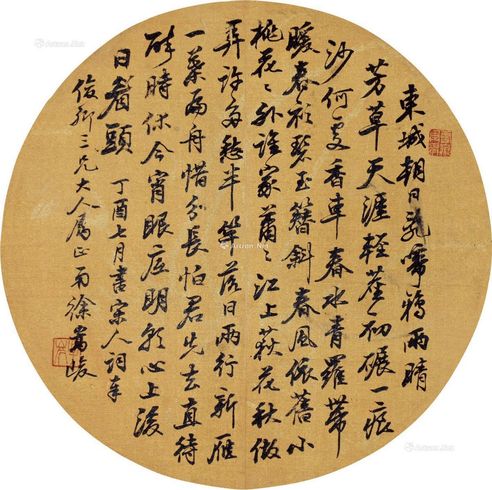 東城朝日亂啼鴉雨晴
芳草天涯輕塵初碾一痕
沙何處香車春水青羅帶
暖春碧玉簪斜春風依舊小
桃花々外誰家蕭々江上荻花秋做
弄許多愁半竿落日兩行新雁
一葉扁舟惜分長怕君先去直待
醉時休今宵眼底明朝心上後
日眉頭
丁酉七月書宋人詞奉
俊卿三兄大人屬正弟徐